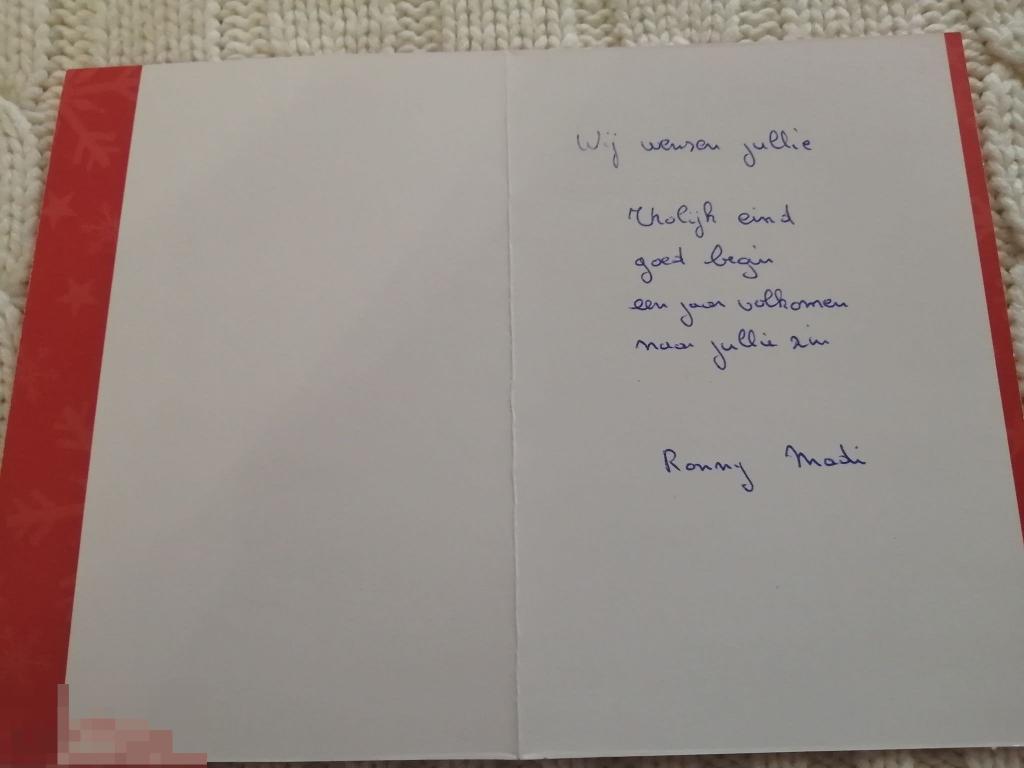 Wij wensen jullie
Vrolijk eind
goed begin
een jaar volkomen
naar jullie zin
Ronny Madi